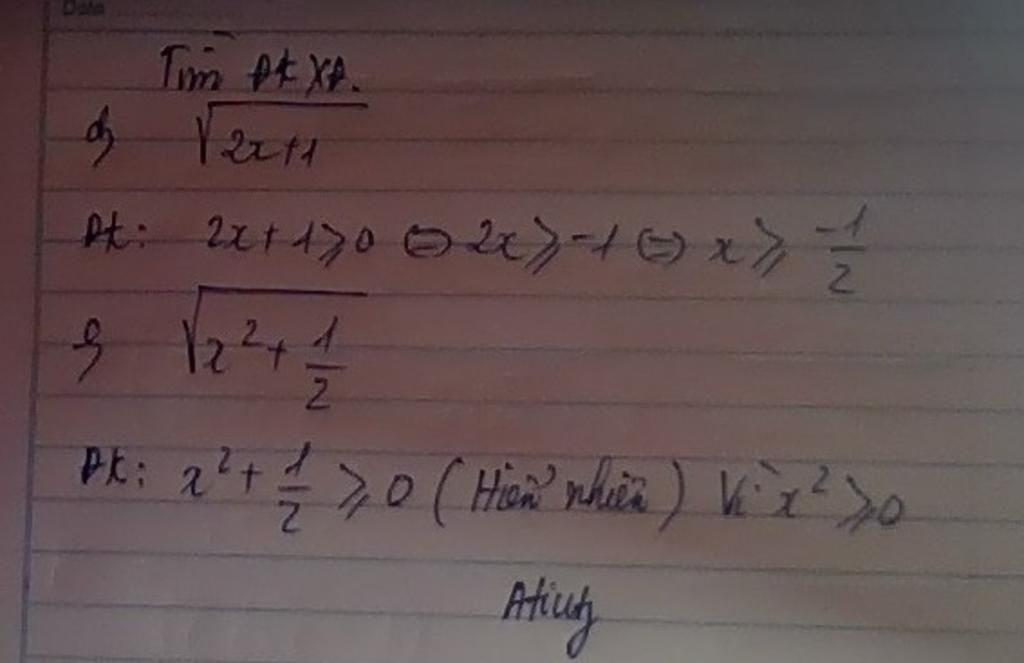 Date
Tìm ĐKXĐ.
a) √(2x+1)
ĐK: 2x+1 ⩾ 0 ⇔ 2x ⩾ -1 ⇔ x ⩾ -1/2
b) √(x² + 1/2)
ĐK: x² + 1/2 ⩾ 0 (Hiển nhiên) Vì x² ⩾ 0